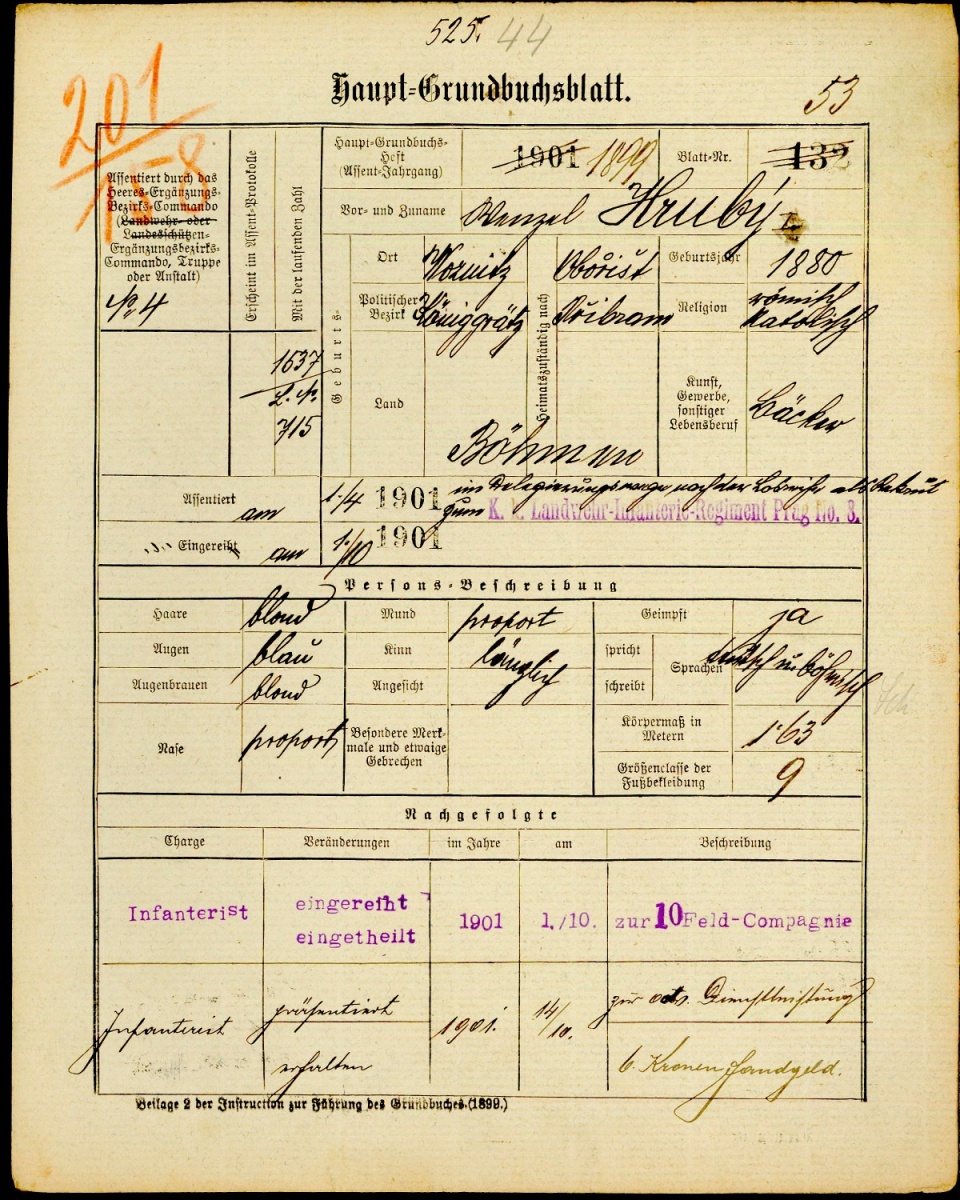 525. 44
Haupt-Grundbuchsblatt.
53
201
158
Assentiert durch das
Heeres-Ergänzungs-
Bezirks-Commando
(Landwehr- oder
Landesschützen-
Ergänzungsbezirks-
Commando, Truppe
oder Anstalt)
No. 4
Erscheint im Assent-Protokolle
Mit der laufenden Zahl
1637
L. No.
715
Haupt-Grundbuchs-
Heft
(Assent-Jahrgang)
1901 1899
Blatt-Nr. 132
Vor- und Zuname Wenzel Hrubý
Geburts-
Ort Woznitz
Politischer
Bezirk Königgrätz
Land
Böhmen
Heimatszuständig nach
Obořišt
Přibram
Geburtsjahr 1880
Religion römisch
katolisch
Kunst,
Gewerbe,
sonstiger
Lebensberuf
Bäcker
Assentiert am 1./4 1901 im Delegierungswege, nach der als Rekrut
zum K. k. Landwehr-Infanterie-Regiment Prag No. 8.
Eingereiht am 1./10 1901
Persons-Beschreibung
Haare blond
Augen blau
Augenbrauen blond
Nase proport
Mund proport
Kinn länglich
Angesicht
Besondere Merk-
male und etwaige
Gebrechen
Geimpft ja
spricht
schreibt
Sprachen deutsch u. böhmisch
Körpermaß in
Metern 1·63
Größenclasse der
Fußbekleidung 9
Nachgefolgte
Charge Veränderungen im Jahre am Beschreibung
Infanterist eingereiht
eingetheilt 1901 1./10. zur 10 Feld-Compagnie
Infanterist präsentiert 1901. 14/10. zur act. Dienstleistung
erhalten 6. Kronen Handgeld.
Beilage 2 der Instruction zur Führung des Grundbuches. (1899.)